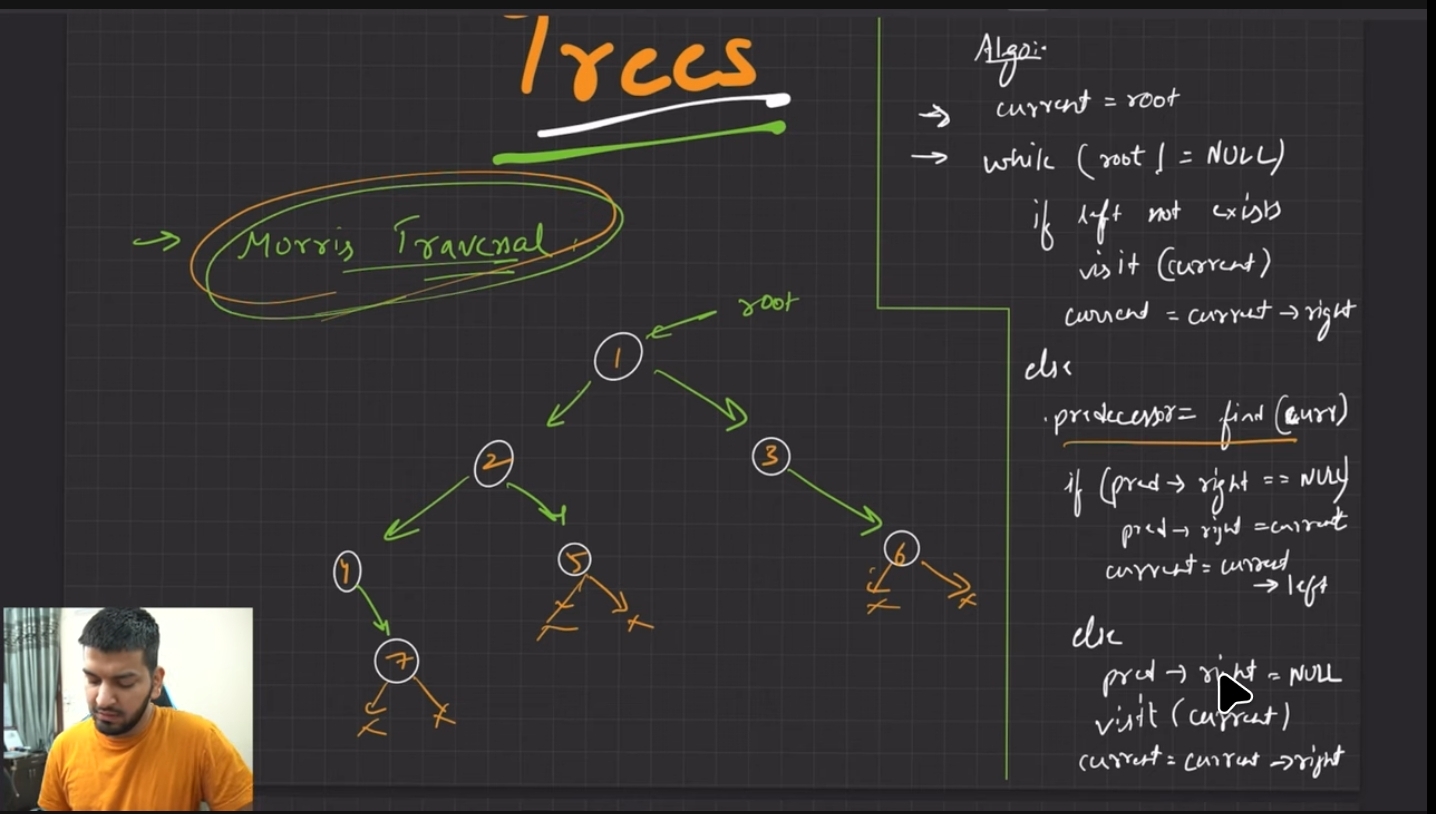 Trees
Morris Traversal
root
1
2
3
4
5
6
7
Algo:-
current = root
while (root != NULL)
if left not exists
visit (current)
current = current → right
else
predecessor = find (curr)
if (pred → right == NULL)
pred → right = current
current = current
→ left
else
pred → right = NULL
visit (current)
current = current → right